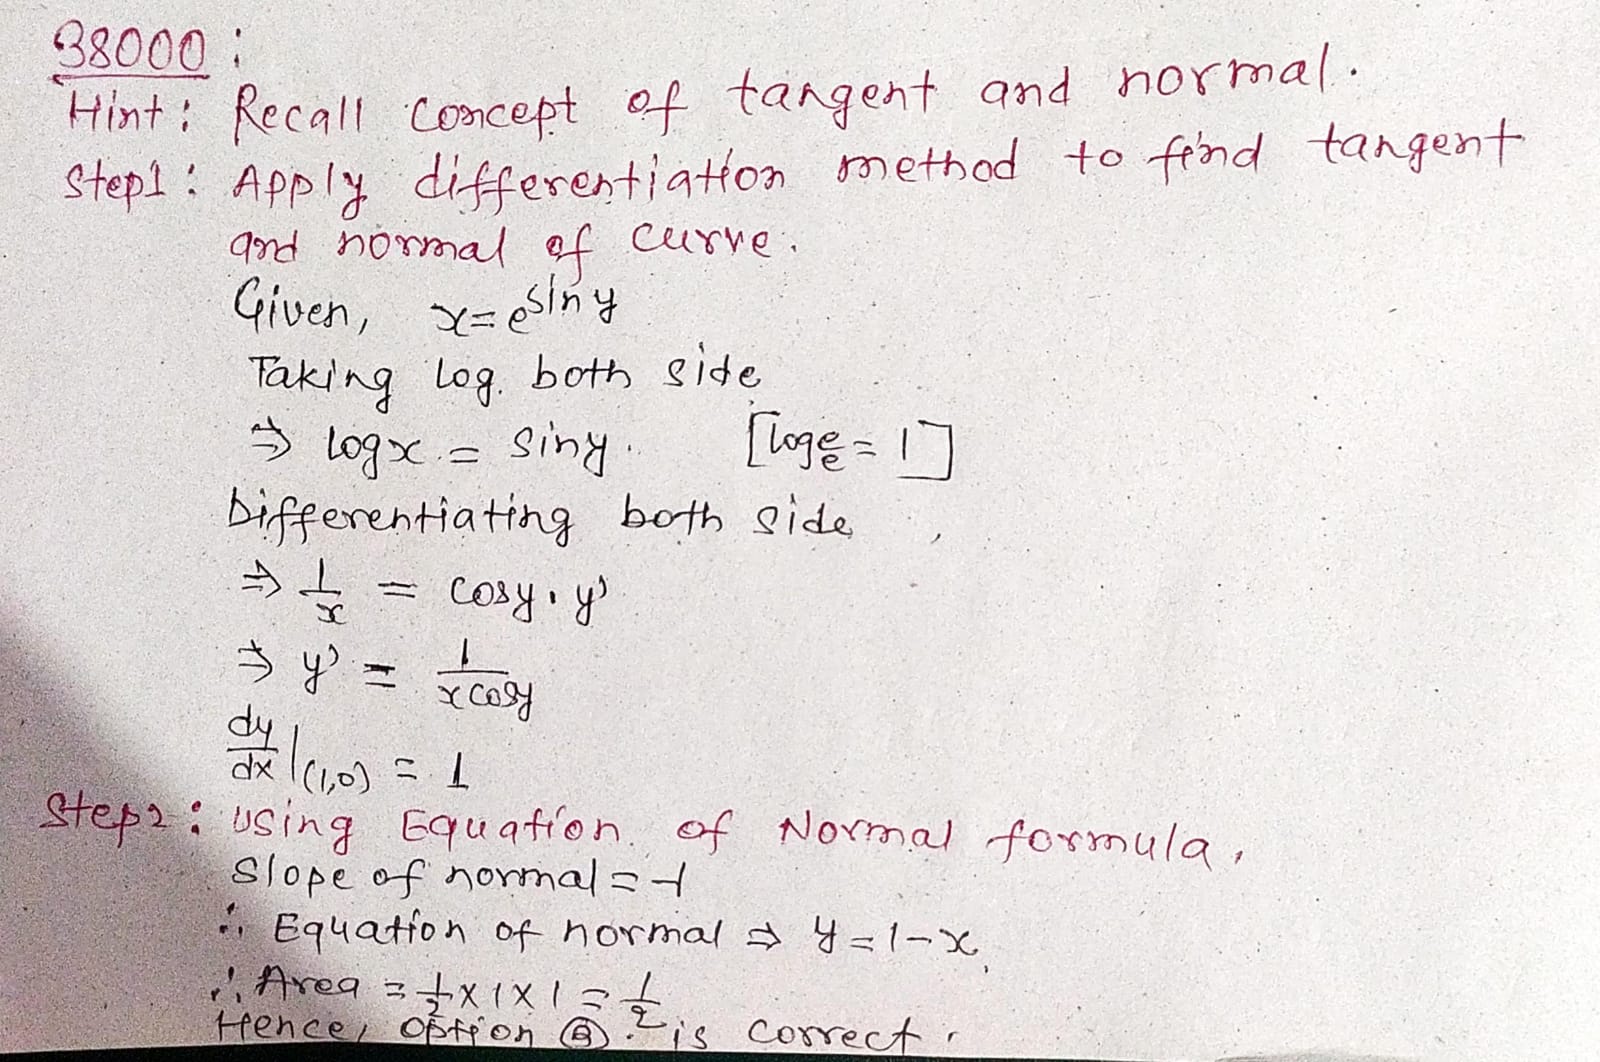 38000:
Hint: Recall concept of tangent and normal.
Step1: Apply differentiation method to find tangent
and normal of curve.
Given, x=e^siny
Taking log. both side
⇒ logx = siny. [log_e e = 1]
Differentiating both side
⇒ 1/x = cosy.y'
⇒ y' = 1/xcosy
dy/dx|(1,0) = 1
Step2: using Equation of Normal formula,
Slope of normal = -1
∴ Equation of normal ⇒ y=1-x
∴ Area = 1/2 x 1 x 1 = 1/2
Hence, option Ⓑ. is correct.